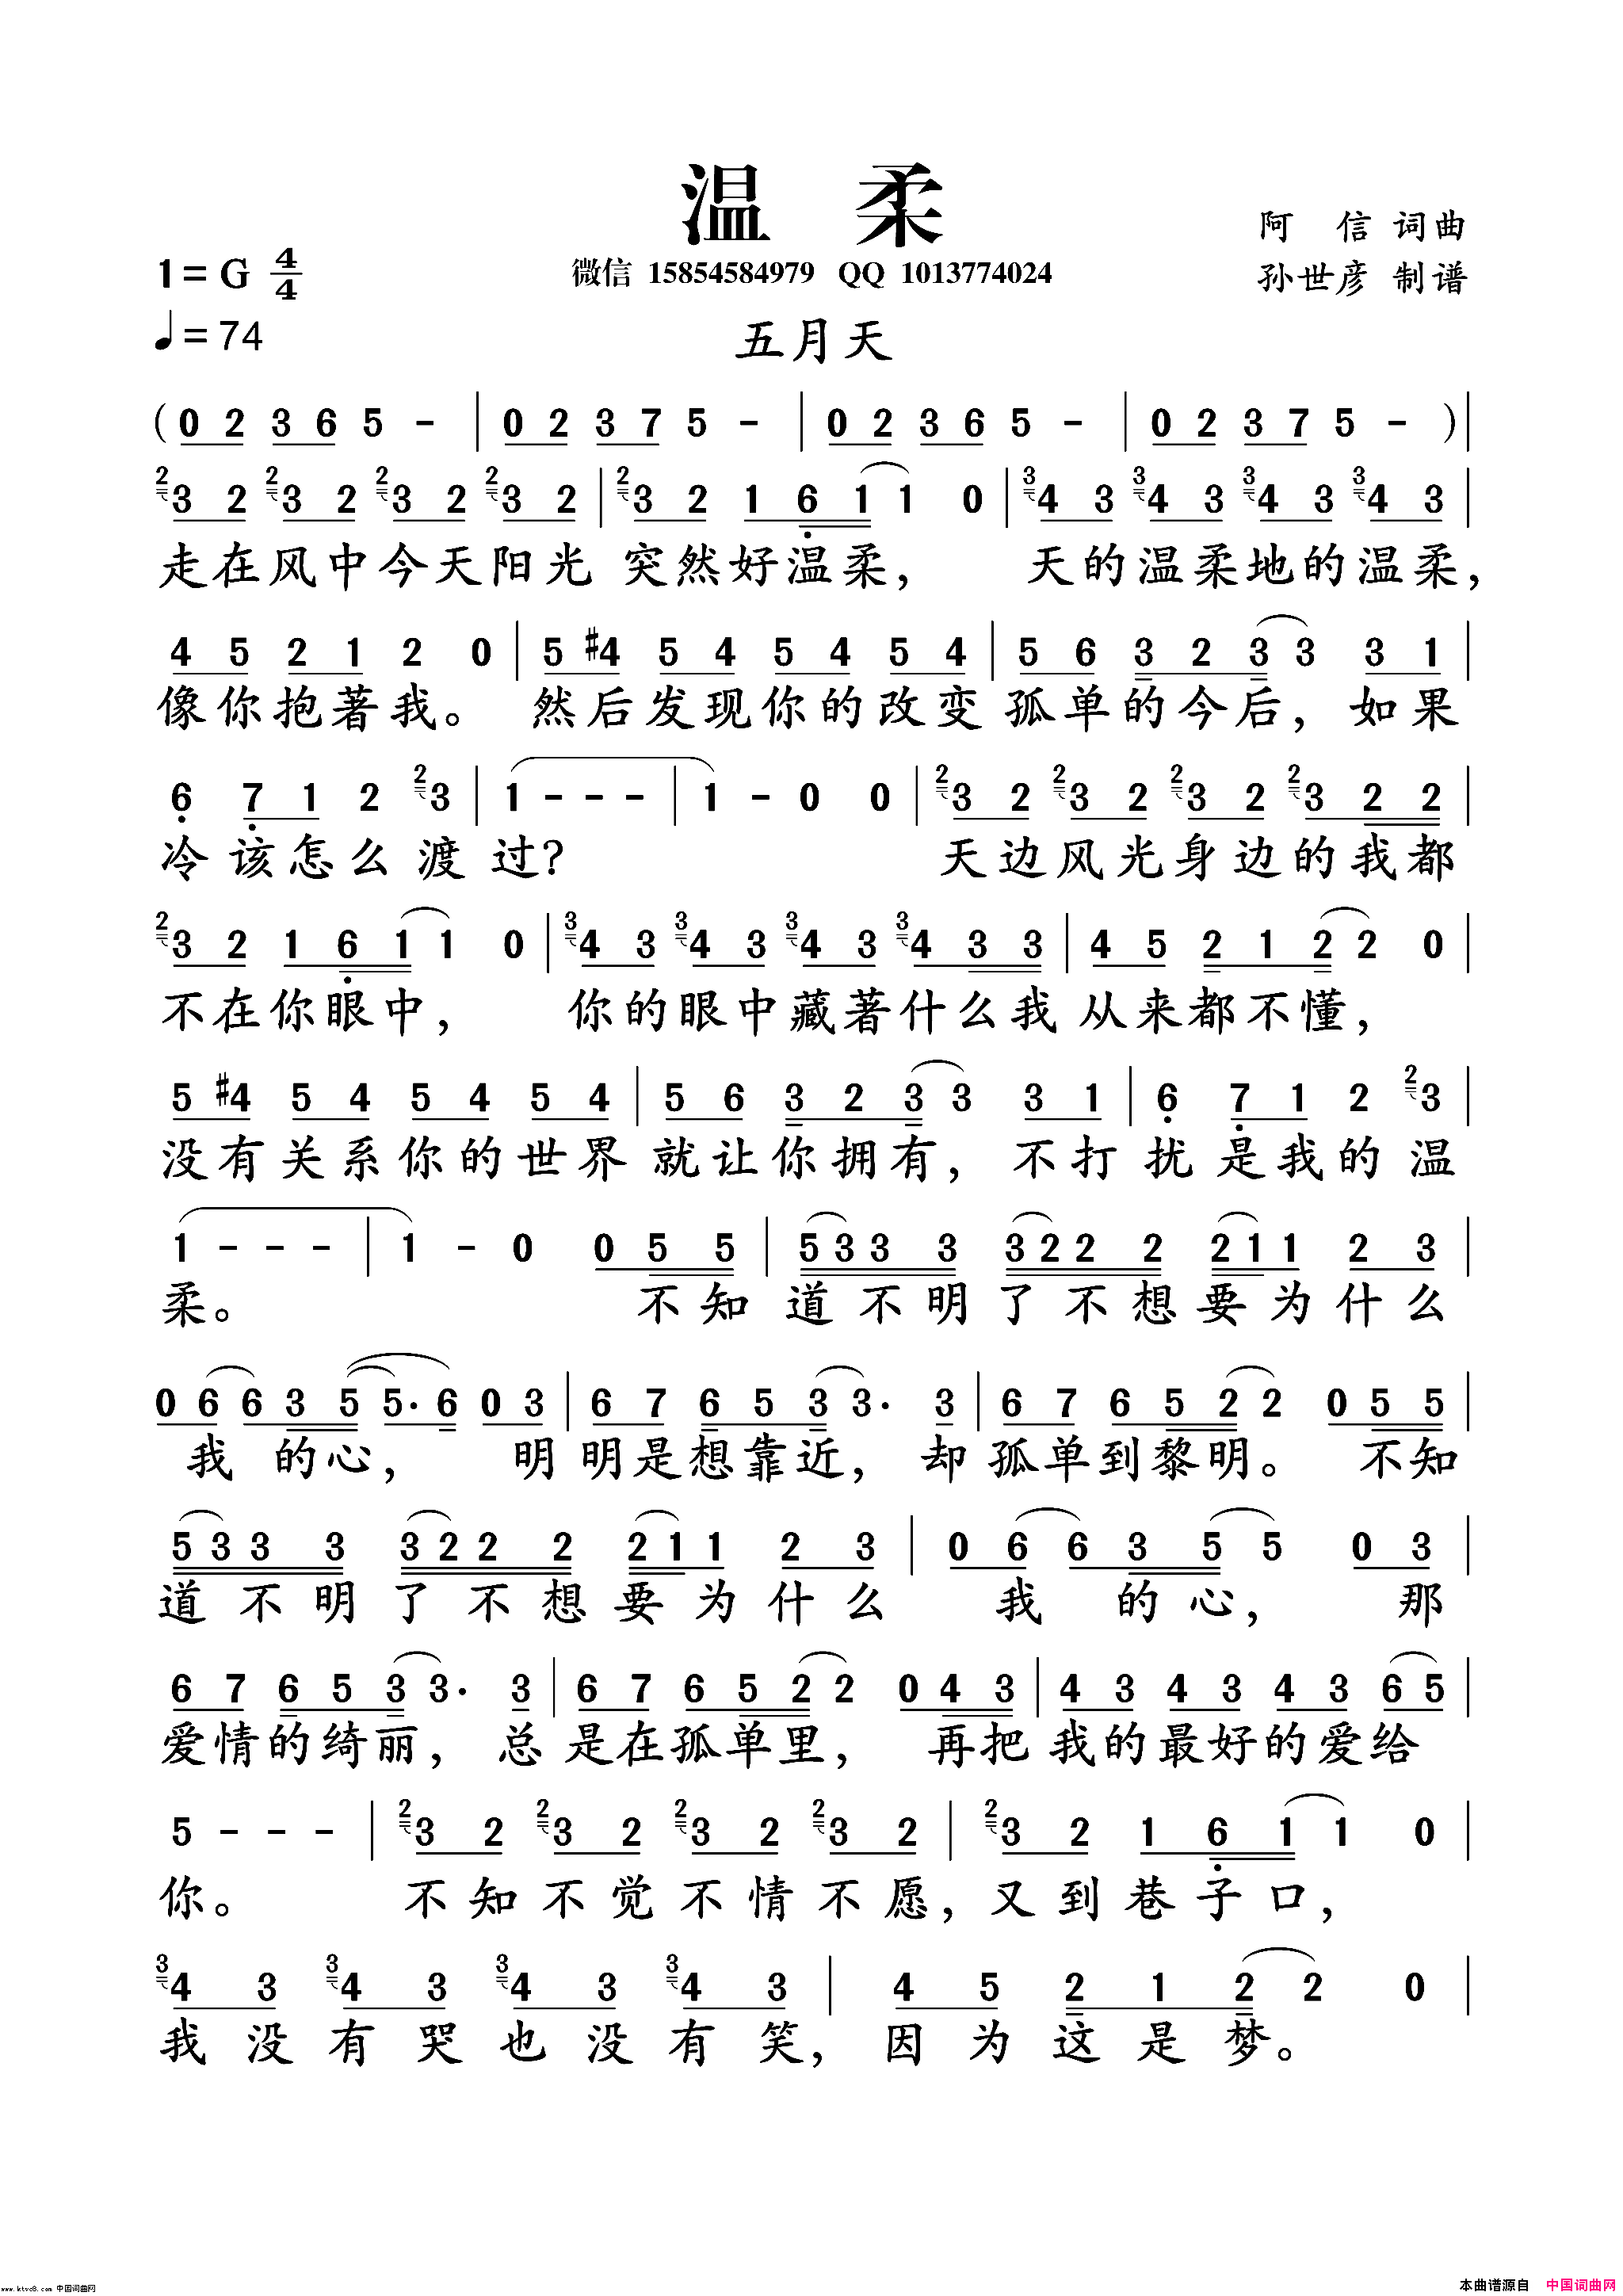 温 柔
阿 信 词曲
1=G 4/4
微信 15854584979 QQ 1013774024
孙世彦 制谱
♩=74
五月天
(0 2 3 6 5 - | 0 2 3 7 5 - | 0 2 3 6 5 - | 0 2 3 7 5 - )|
2 3 2 2 3 2 2 3 2 2 3 2 | 2 3 2 1 6 1 1 0 | 3 4 3 3 4 3 3 4 3 3 4 3 |
走在风中今天阳光 突然好温柔, 天的温柔地的温柔,
4 5 2 1 2 0 | 5 #4 5 4 5 4 5 4 | 5 6 3 2 3 3 3 1 |
像你抱著我。 然后发现你的改变 孤单的今后, 如果
6 7 1 2 2 3 | 1 - - - | 1 - 0 0 | 2 3 2 2 3 2 2 3 2 2 3 2 2 |
冷该怎么渡过? 天边风光身边的我都
2 3 2 1 6 1 1 0 | 3 4 3 3 4 3 3 4 3 3 4 3 3 | 4 5 2 1 2 2 0 |
不在你眼中, 你的眼中藏著什么我 从来都不懂,
5 #4 5 4 5 4 5 4 | 5 6 3 2 3 3 3 1 | 6 7 1 2 2 3 |
没有关系你的世界 就让你拥有, 不打扰是我的温
1 - - - | 1 - 0 0 5 5 | 5 3 3 3 3 2 2 2 2 1 1 2 3 |
柔。 不知道不明了不想要为什么
0 6 6 3 5 5· 6 0 3 | 6 7 6 5 3 3· 3 | 6 7 6 5 2 2 0 5 5 |
我的心, 明明是想靠近, 却孤单到黎明。 不知
5 3 3 3 3 2 2 2 2 1 1 2 3 | 0 6 6 3 5 5 0 3 |
道不明了不想要为什么 我的心, 那
6 7 6 5 3 3· 3 | 6 7 6 5 2 2 0 4 3 | 4 3 4 3 4 3 6 5 |
爱情的绮丽, 总是在孤单里, 再把我的最好的爱给
5 - - - | 2 3 2 2 3 2 2 3 2 2 3 2 | 2 3 2 1 6 1 1 0 |
你。 不知不觉不情不愿, 又到巷子口,
3 4 3 3 4 3 3 4 3 3 4 3 | 4 5 2 1 2 2 0 |
我没有哭也没有笑, 因为这是梦。
www.ktvc8.com 中国词曲网
本曲谱源自 中国词曲网